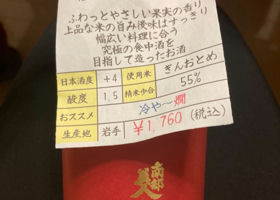 ふわっとやさしい果実の香り
上品な米の旨み後味はすっきり
幅広い料理に合う
究極の食中酒を
目指して造ったお酒
日本酒度 +4 使用米 ぎんおとめ
酸度 1.5 精米歩合 55%
おススメ 冷や〜燗
生産地 岩手 ¥1,760 (税込)
南部美人